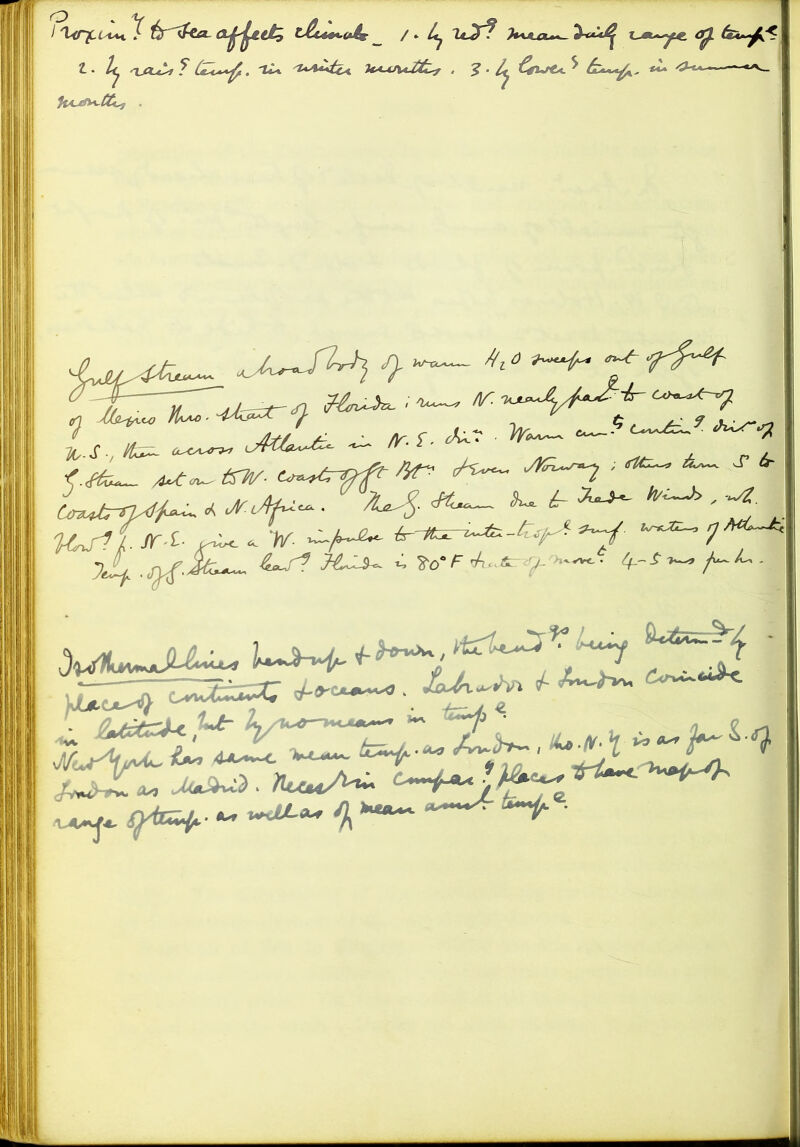 Proxim.y to sea affects climate _ 1. by red.g mean daily range of temp.e
2. by rais.g temp. in winter months. 3. by lower.g temp. in summer
months.
Gulf Stream a broad body of warm H2O sweeps out of Gulf
of Mexico thro. strait of Florida; runs N. nearly par.l to coast of
U.S., then across Atlantic in N.E. dir.n. Warm curr.ts contin.g dir.n of
G. Stream set on to W. coasts of Gt Bt.n & even Norway; others turn S to
coasts of Spain & N. Africa. The G. Stream due to Trade Winds, wh.
blow.g f. N.E. give a W. impulse to the inter-trop.l surf. waters of Atlantic
Temp. of G. Stream leav.g Florida is 80°F & rate of move.t 4-5 ms per hr.
Isothermal lines bend up & down, the bend.gs being determ.d by
place of continents & oceans. Labrador & London coincide
in latitude, but by no means in temp.e
New York has same mean temp. as London, tho. N.Y is as far S. of
London as Madrid. Necess.y in compar.g places to have map of
range of temp. as well as of mean ann.l temp.e.